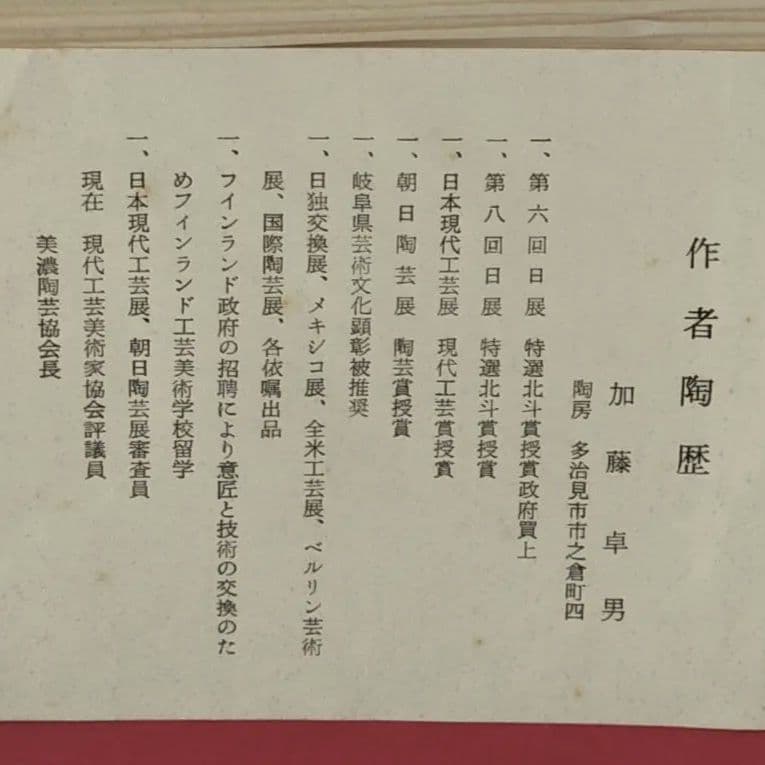 作者陶歴
加藤卓男
陶房　多治見市市之倉町四
一、第六回日展　特選北斗賞授賞政府買上
一、第八回日展　特選北斗賞授賞
一、日本現代工芸展　現代工芸賞授賞
一、朝日陶芸展　陶芸賞授賞
一、岐阜県芸術文化顕彰被推奨
一、日独交換展、メキシコ展、全米工芸展、ベルリン芸術
展、国際陶芸展、各依嘱出品
一、フインランド政府の招聘により意匠と技術の交換のた
めフインランド工芸美術学校留学
一、日本現代工芸展、朝日陶芸展審査員
現在　現代工芸美術家協会評議員
美濃陶芸協会長